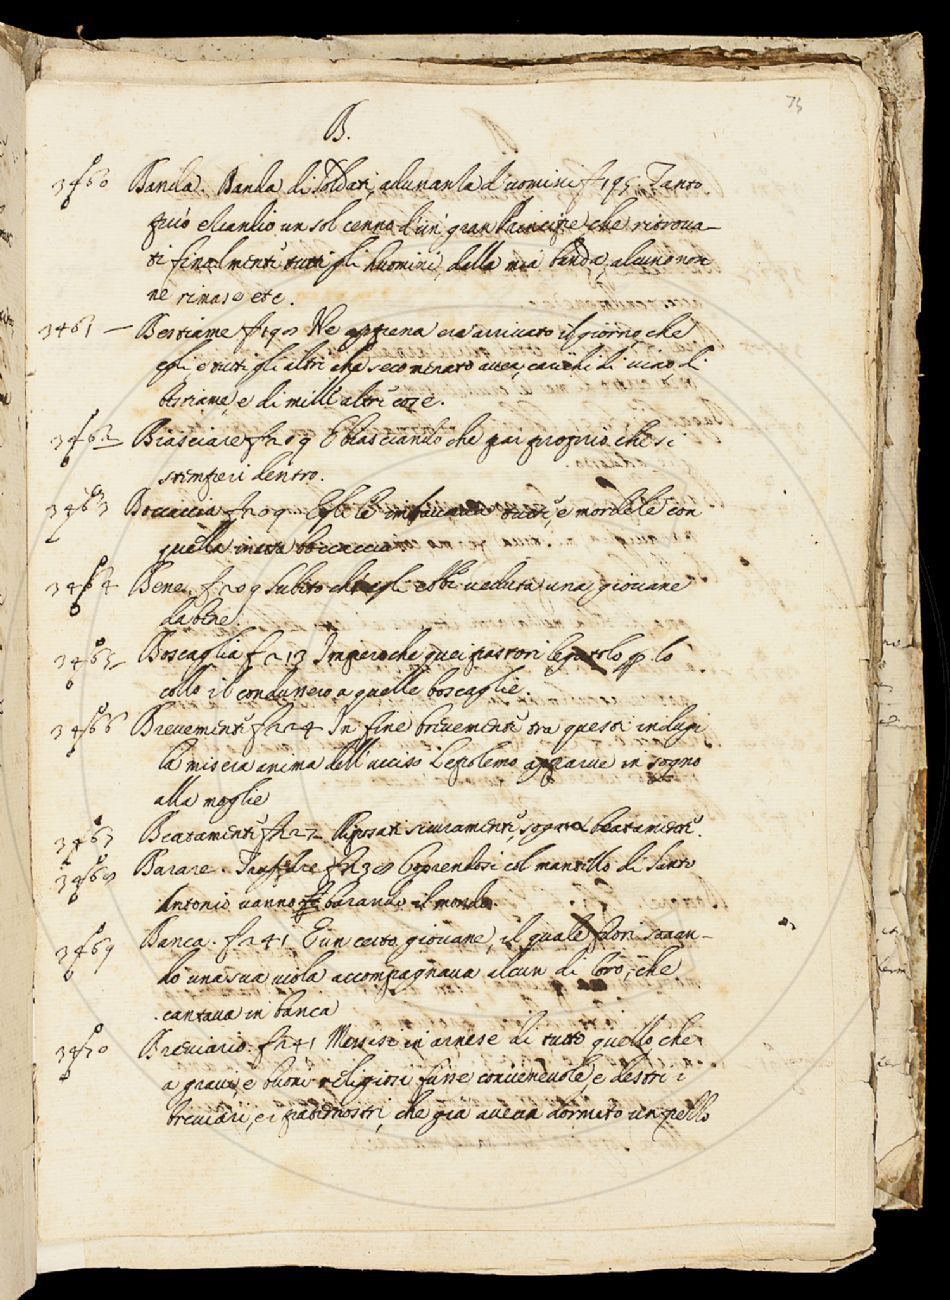 73
B.
3460 Banda. Banda di soldati, adunanza d'uomini f 195 Tanto
può eziandio un sol cenno d'un gran Principe, che ritrova-
ti finalmente tutti gli huomini della mia banda, alcuno non
ne rimase etc.
3461 — Bestiame f 198 Ne appena era arrivato il giorno, che
egli e tutti gli altri che seco menato avea, carichi di vino di
bestiame, e di mill'altre cose.
3462 Biasciare f 209 E biasciando che par proprio che si
stemperi dentro.
3463 Boccaccia f 209 Egli le buci, e mordele con
quella boccaccia
3464 Bene. f 209 Subito che egli ebbe veduta una giovane
da bene.
3465 Boscaglia f 213 Imperoche quei pastori legatolo p lo
collo il condussero a quelle boscaglie.
3466 Brevemente f 224 In fine brevemente tra questi indugi
la misera anima dell'ucciso Lepolemo apparve in sogno
alla moglie
3467 Beatamente f 227 Riposati sicuramente, sogna beatamente.
3468 Barare. f 238 Coprendosi col mantello di Santo
Antonio vanno barando il mondo.
3469 Banca. f 241 E un certo giovane, il quale fuori sonan-
do una sua viola accompagnava alcun di loro, che
cantava in banca
3470 Breviario. f 241 Messesi in arnese di tutto quello che
a gravi, e buoni religiosi fusse convenevole, e destri i
breviari, e i paternostri, che gia aveva dormito un pello